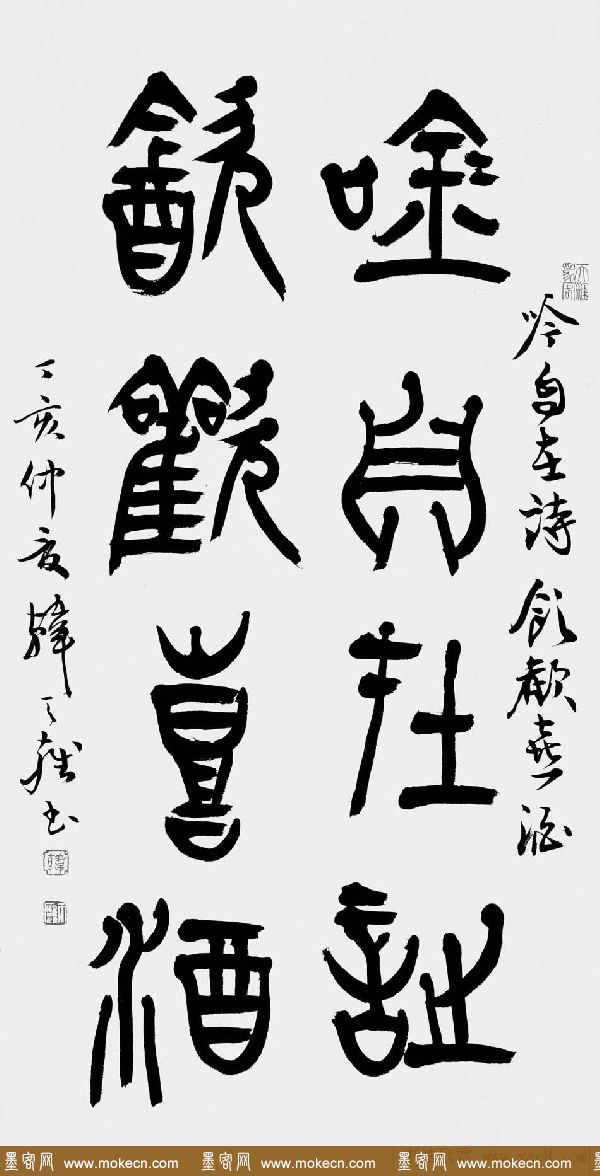 吟自在詩飲歡喜酒
唫自在詩
飲歡喜酒
丁亥仲夏韓天雍書
墨客网 www.mokecn.com 墨客网 www.mokecn.com 墨客网 www.mokecn.com 墨客网